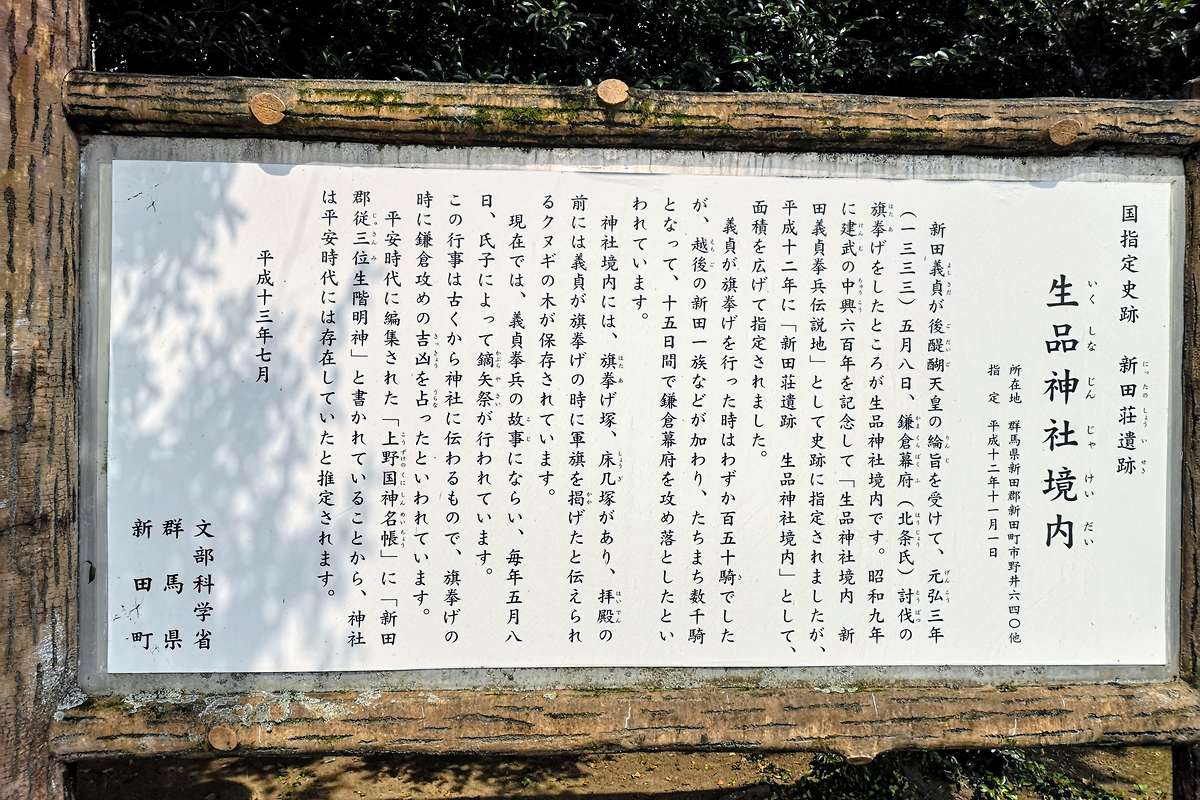 国指定史跡　新田荘遺跡
生品神社境内
所在地　群馬県新田郡新田町市野井六四〇他
指　定　平成十二年十一月一日
新田義貞が後醍醐天皇の綸旨を受けて、元弘三年
（一三三三）五月八日、鎌倉幕府（北条氏）討伐の
旗挙げをしたところが生品神社境内です。昭和九年
に建武の中興六百年を記念して「生品神社境内　新
田義貞挙兵伝説地」として史跡に指定されましたが、
平成十二年に「新田荘遺跡　生品神社境内」として、
面積を広げて指定されました。
義貞が旗挙げを行った時はわずか百五十騎でした
が、越後の新田一族などが加わり、たちまち数千騎
となって、十五日間で鎌倉幕府を攻め落としたとい
われています。
神社境内には、旗挙げ塚、床几塚があり、拝殿の
前には義貞が旗挙げの時に軍旗を掲げたと伝えられ
るクヌギの木が保存されています。
現在では、義貞挙兵の故事にならい、毎年五月八
日、氏子によって鏑矢祭が行われています。
この行事は古くから神社に伝わるもので、旗挙げの
時に鎌倉攻めの吉凶を占ったといわれています。
平安時代に編集された「上野国神名帳」に「新田
郡従三位生階明神」と書かれていることから、神社
は平安時代には存在していたと推定されます。
平成十三年七月
文部科学省
群馬県
新田町